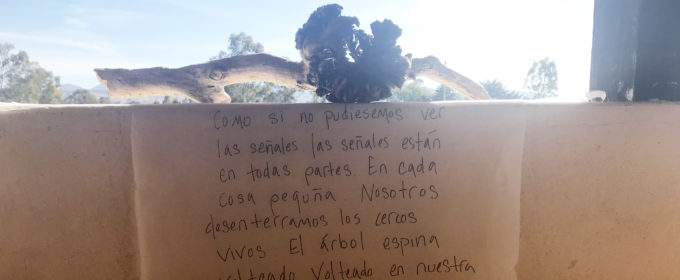 Como si no pudiesemos ver
las señales las señales están
en todas partes. En cada
cosa peguña. Nosotros
desenterramos los cercos
vivos. El árbol espina
volteado. Volteado en nuestra